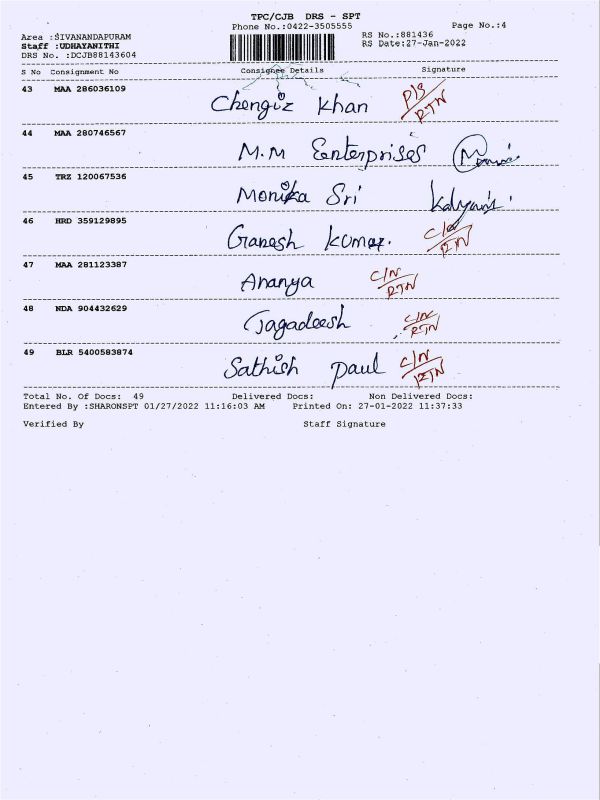 TPC/CJB DRS - SPT
Phone No.:0422-3505555 Page No.:4
Area :SIVANANDAPURAM RS No.:881436
Staff :UDHAYANITHI RS Date:27-Jan-2022
DRS No. :DCJB88143604
S No Consignment No Consignee Details Signature
43 MAA 286036109 Chengiz Khan RTN
44 MAA 280746567 M.M Enterprises
45 TRZ 120067536 Monika Sri
46 HRD 359129895 Ganesh Kumar. C/N RTN
47 MAA 281123387 Ananya C/N RTN
48 NDA 904432629 Jagadeesh C/N RTN
49 BLR 5400583874 Sathish Paul C/N RTN
Total No. Of Docs: 49 Delivered Docs: Non Delivered Docs:
Entered By :SHARONSPT 01/27/2022 11:16:03 AM Printed On: 27-01-2022 11:37:33
Verified By Staff Signature